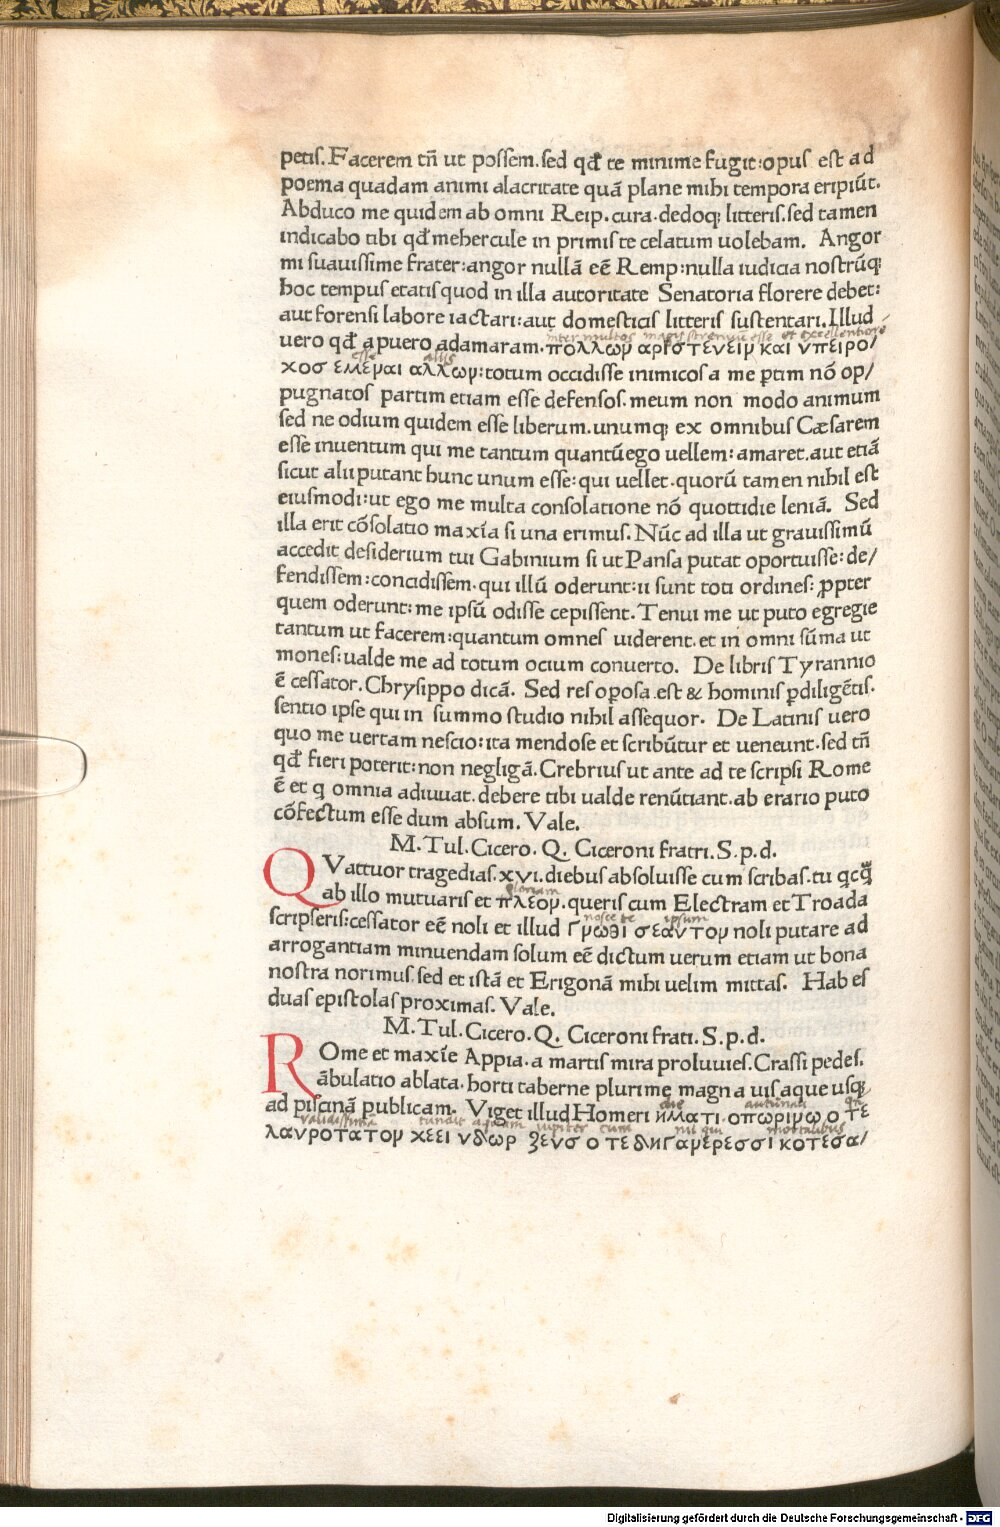 petis. Facerem tñ ut possem. sed qđ te minime fugit: opus est ad
poema quadam animi alacritate quã plane mihi tempora eripiũt.
Abduco me quidem ab omni Reip. cura. dedoq; litteris. sed tamen
indicabo tibi qđ mehercule in primis te celatum uolebam. Angor
mi suauissime frater: angor nullã eẽ Remp: nulla iudicia nostrũq;
hoc tempus etatis quod in illa autoritate Senatoria florere debet:
aut forensi labore iactari: aut domesticis litteris sustentari. Illud
inter multos magis strenuũ esse et excellentiorẽ
uero qđ a puero adamaram. πολλων αριστενειν και υπειρο/
esse aliis
χοσ εμεναι αλλων: totum occidisse inimicos a me ꝑtim nõ op/
pugnatos partim etiam esse defensos. meum non modo animum
sed ne odium quidem esse liberum. unumq; ex omnibus Cæsarem
esse inuentum qui me tantum quantũ ego uellem: amaret. aut etiã
sicut alii putant hunc unum esse: qui uellet. quorũ tamen nihil est
eiusmodi: ut ego me multa consolatione nõ quottidie leniã. Sed
illa erit cõsolatio maxĩa si una erimus. Nũc ad illa ut grauissimũ
accedit desiderium tui Gabinium si ut Pansa putat oportuisse: de/
fendissem: concidissem. qui illũ oderunt: ii sunt toti ordines: ꝓpter
quem oderunt: me ipsũ odisse cepissent. Tenui me ut puto egregie
tantum ut facerem: quantum omnes uiderent. et in omni sũma ut
mones: ualde me ad totum ocium conuerto. De libris Tyrannio
ẽ cessator. Chrysippo dicã. Sed res oꝑosa est & hominis ꝑdiligẽtis.
sentio ipse qui in summo studio nihil assequor. De Latinis uero
quo me uertam nescio: ita mendose et scribũtur et ueneunt. sed tñ
qđ fieri poterit: non negligã. Crebrius ut ante ad te scripsi Rome
ẽ et q omnia adiuuat. debere tibi ualde renũtiant. ab erario puto
cõfectum esse dum absum. Vale.
M. Tul. Cicero. Q. Ciceroni fratri. S. p. d.
QVattuor tragedias. xvi. diebus absoluisse cum scribas. tu qcq̃
gloriam
ab illo mutuaris et πλεον. queris cum Electram et Troada
nosce te ipsum
scripseris: cessator eẽ noli et illud Γνωθι σεαντον noli putare ad
arrogantiam minuendam solum eẽ dictum uerum etiam ut bona
nostra norimus. sed et istã et Erigonã mihi uelim mittas. Habes
duas epistolas proximas. Vale.
M. Tul. Cicero. Q. Ciceroni frati. S. p. d.
ROme et maxĩe Appia. a martis mira proluuies. Crassi pedes.
ãbulatio ablata. horti taberne plurime magna uis aque usq;
die autũnali
ad piscinã publicam. Viget illud Homeri ηματι. οπωρινω ο τε
validissima aquam iupiter cum mortalibus
λανροτατον χεει υδωρ ζενσ ο τε δηΓανερεσσι κοτεσα/
Digitalisierung gefördert durch die Deutsche Forschungsgemeinschaft - DFG